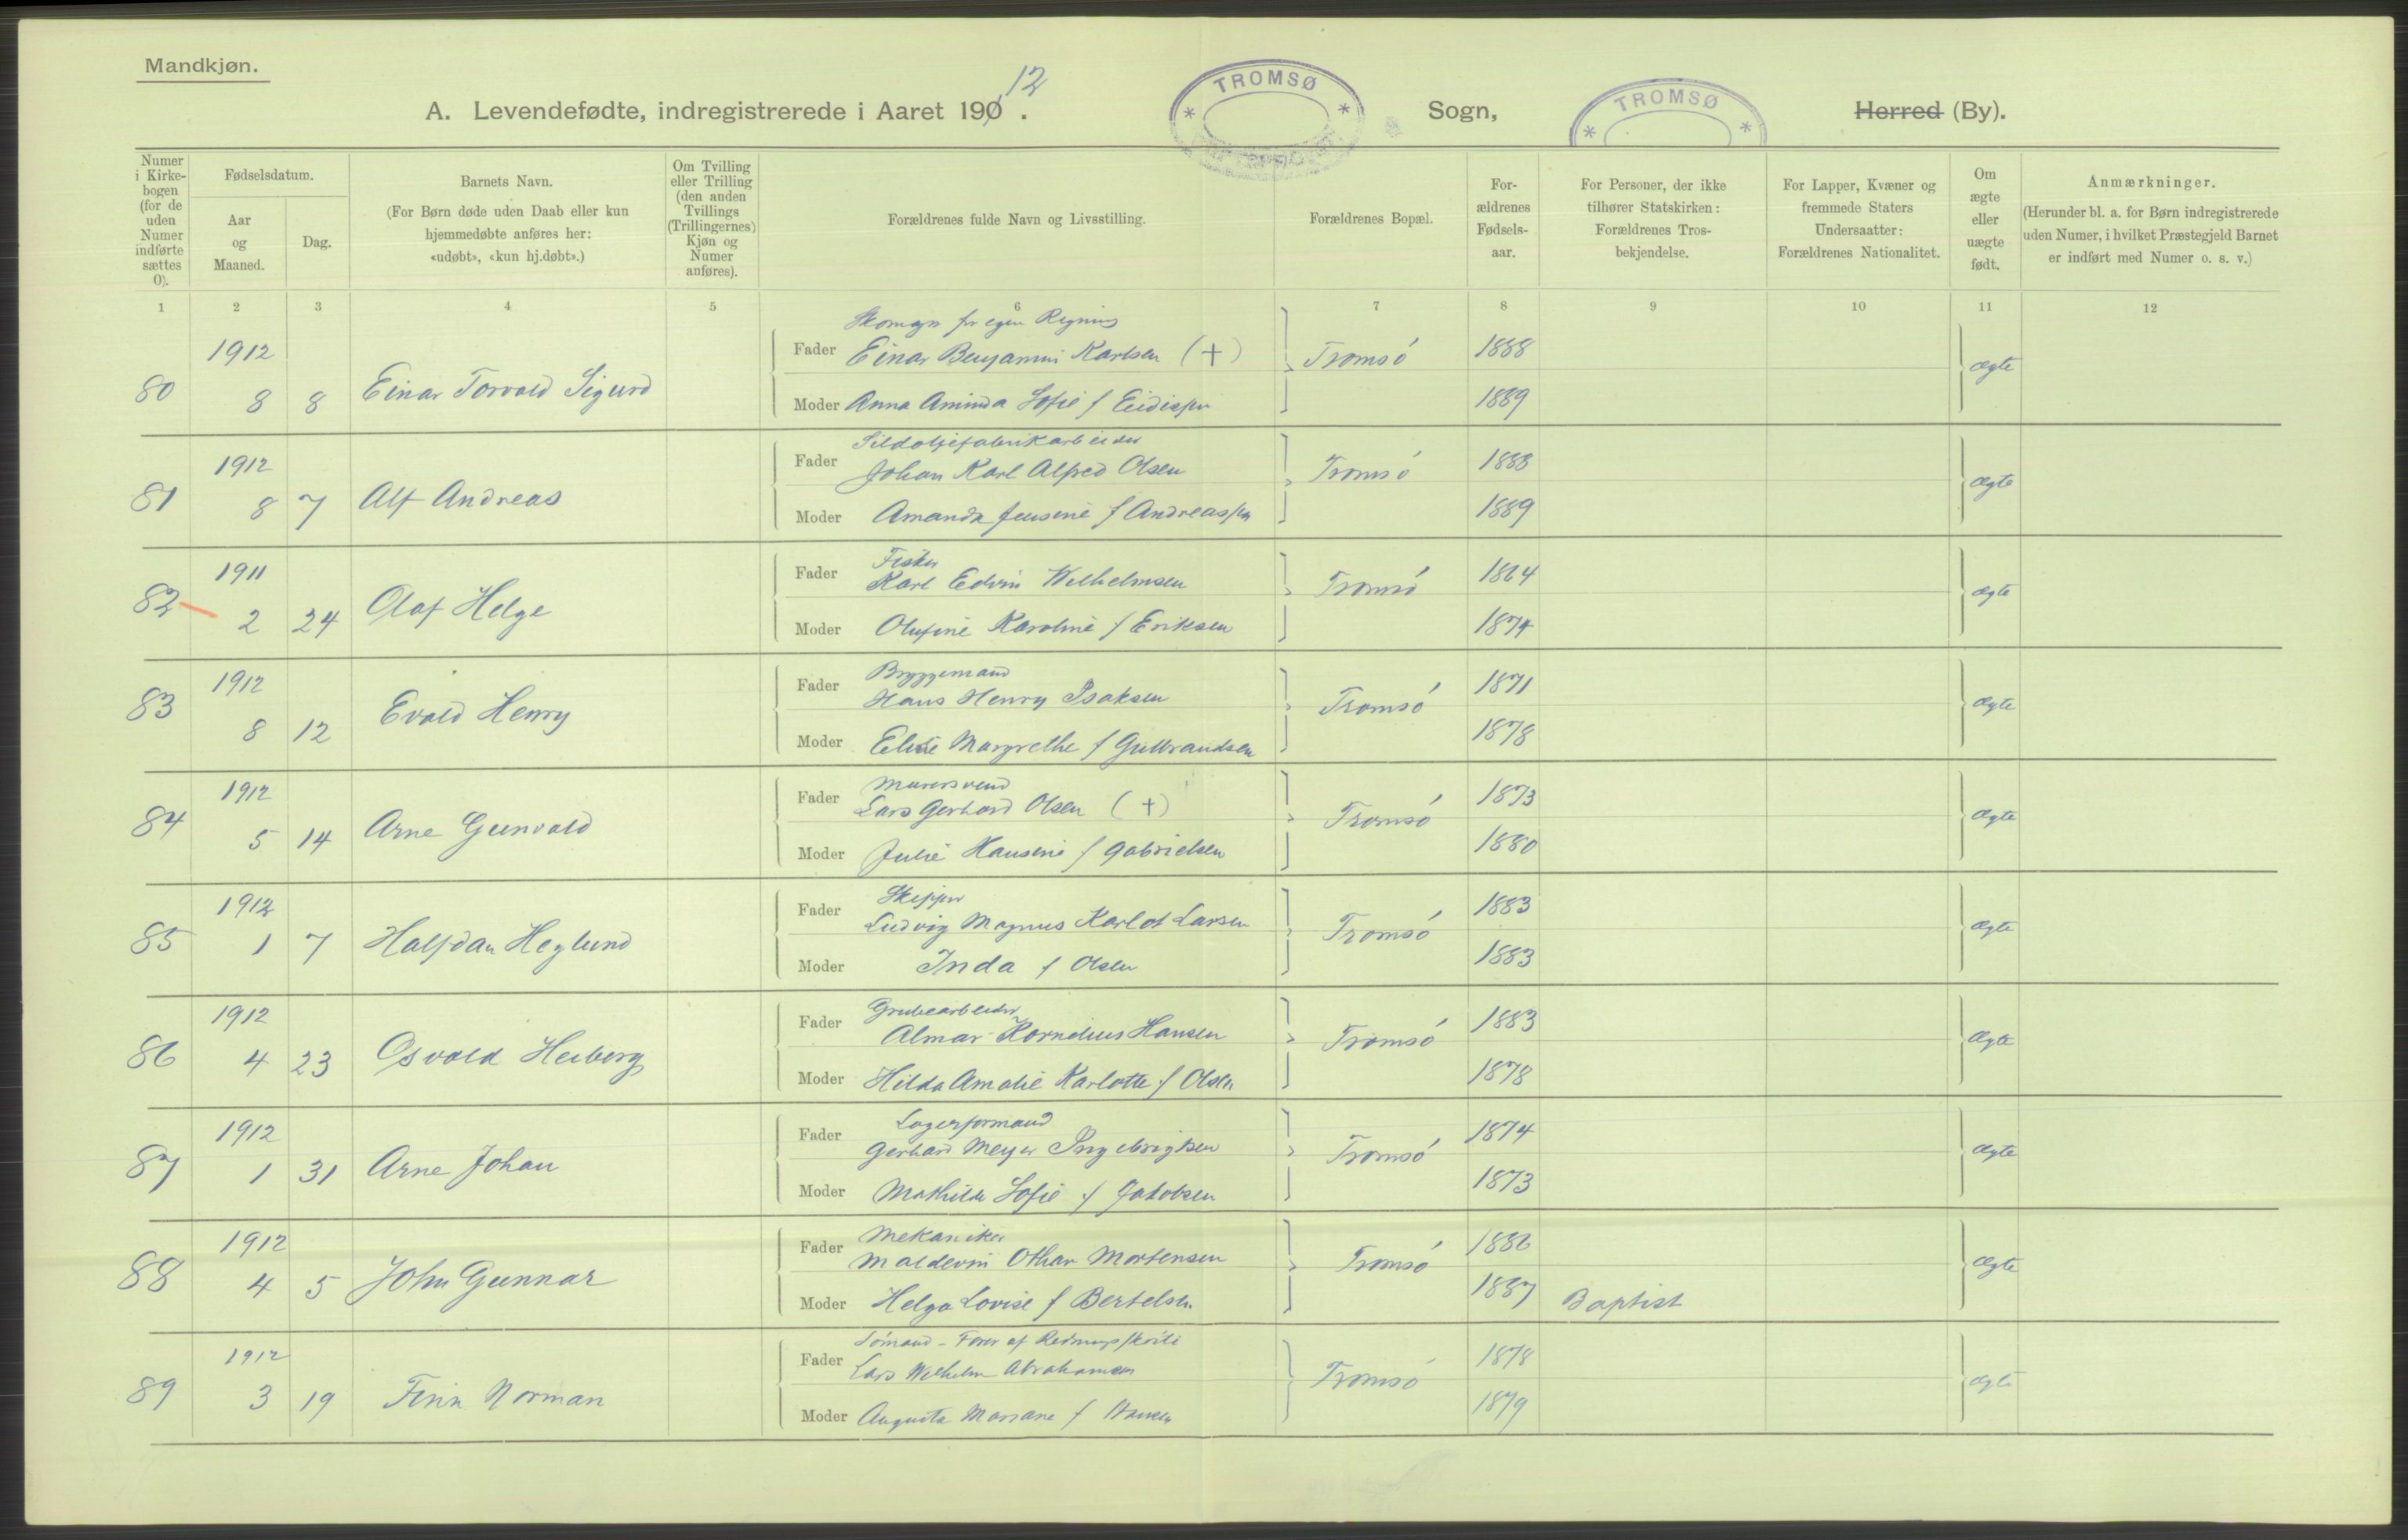 Mandkjøn.
A. Levendefødte, indregistrerede i Aaret 190 12 .
TROMSØ
Sogn,
TROMSØ
Herred (By).
Numer i Kirke- bogen (for de uden Numer indførte sættes 0).
Fødselsdatum.
Aar og Maaned.
Dag.
Barnets Navn.
(For Børn døde uden Daab eller kun hjemmedøbte anføres her: «udøbt», «kun hj.døbt».)
Om Tvilling eller Trilling (den anden Tvillings (Trillingernes) Kjøn og Numer anføres).
Forældrenes fulde Navn og Livsstilling.
Forældrenes Bopæl.
For- ældrenes Fødsels- aar.
For Personer, der ikke tilhører Statskirken: Forældrenes Tros- bekjendelse.
For Lapper, Kvæner og fremmede Staters Undersaatter: Forældrenes Nationalitet.
Om ægte eller uægte født.
Anmærkninger.
(Herunder bl. a. for Børn indregistrerede uden Numer, i hvilket Præstegjeld Barnet er indført med Numer o. s. v.)
1 2 3 4 5 6 7 8 9 10 11 12
Skomgr for egen Regning
1912 Fader Einar Benjamin Karlsen (+) Tromsö 1888 ægte
80 8 8 Einar Torvald Sigurd
Moder Anna Aminda Sofie f 1889
Sildoljefabrikarbeider
1912 Fader Johan Karl Alfred Olsen Tromsö 1888 ægte
81 8 7 Alf Andreas
Moder Amanda Jensine f Andreassen 1889
Fisker
1911 Fader Karl Edvin Wilhelmsen Tromsö 1864 ægte
82 2 24 Olaf Helge
Moder Olufine Karoline f Eriksen 1874
Bryggemand
1912 Fader Hans Henry Isaksen Tromsö 1871 ægte
83 8 12 Evald Henry
Moder Elise Margrethe f Gulbrandsen 1878
Murersvend
1912 Fader Lars Gerhard Olsen (+) Tromsö 1873 ægte
84 5 14 Arne Gunvald
Moder Julie Hansine f Gabrielsen 1880
Skipper
1912 Fader Ludvig Magnus Karlot Larsen Tromsö 1883 ægte
85 1 7 Halfdan Heglund
Moder Inda f Olsen 1883
Grubearbeider
1912 Fader Almar Kornelius Hansen Tromsö 1883 ægte
86 4 23 Osvald Heiberg
Moder Hilda Amalie Karlotte f Olsen 1878
Lagerformand
1912 Fader Gerhard Meyer Ingebrigtsen Tromsö 1874 ægte
87 1 31 Arne Johan
Moder Mathilde Sofie f Jakobsen 1873
Mekaniker
1912 Fader Maldevin Othar Mortensen Tromsö 1886 ægte
88 4 5 John Gunnar
Moder Helga Lovise f Bertelsen 1887 Baptist
Sömand - Förer af Redningssköite
1912 Fader Lars Wilhelm Abrahamsen Tromsö 1878 ægte
89 3 19 Finn Norman
Moder Augusta Mariane f Hansen 1879